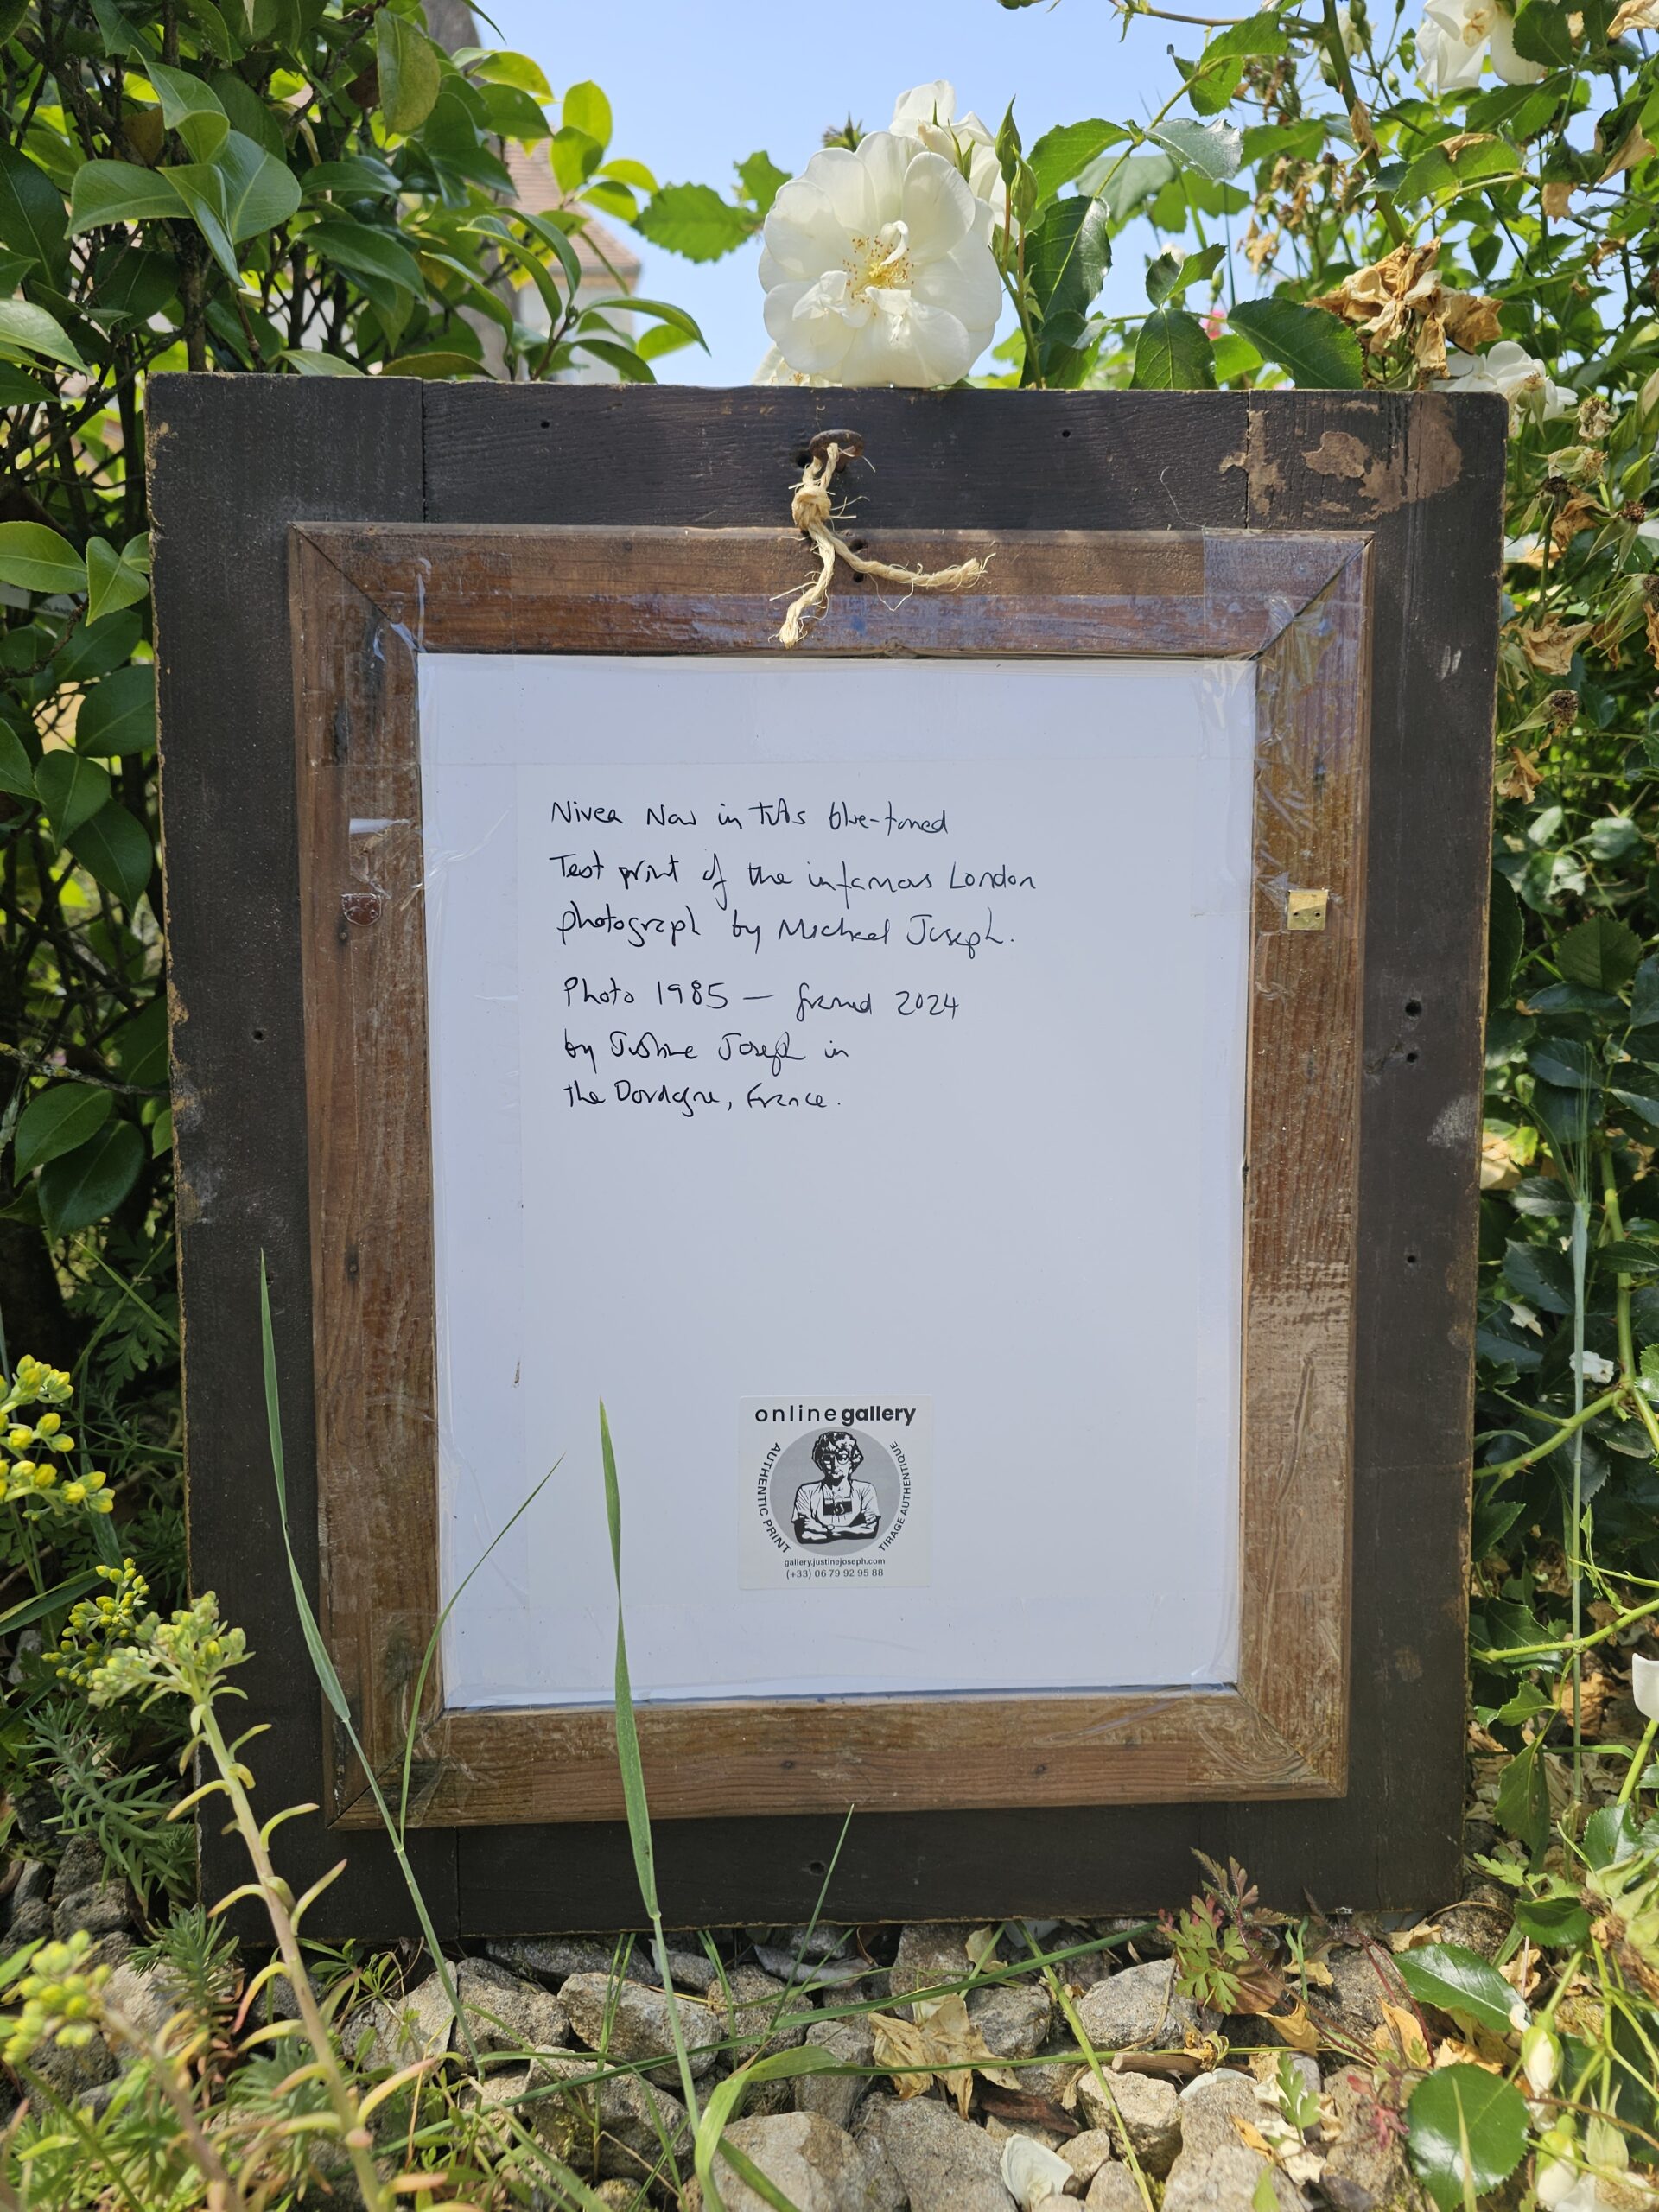 Nivea Nov in this blue-toned
Test print of the infamous London
photograph by Michael Joseph.
Photo 1985 — framed 2024
by Justine Joseph in
the Dordogne, France.
onlinegallery
AUTHENTIC PRINT
TIRAGE AUTHENTIQUE
gallery.justinejoseph.com
(+33) 06 79 92 95 88